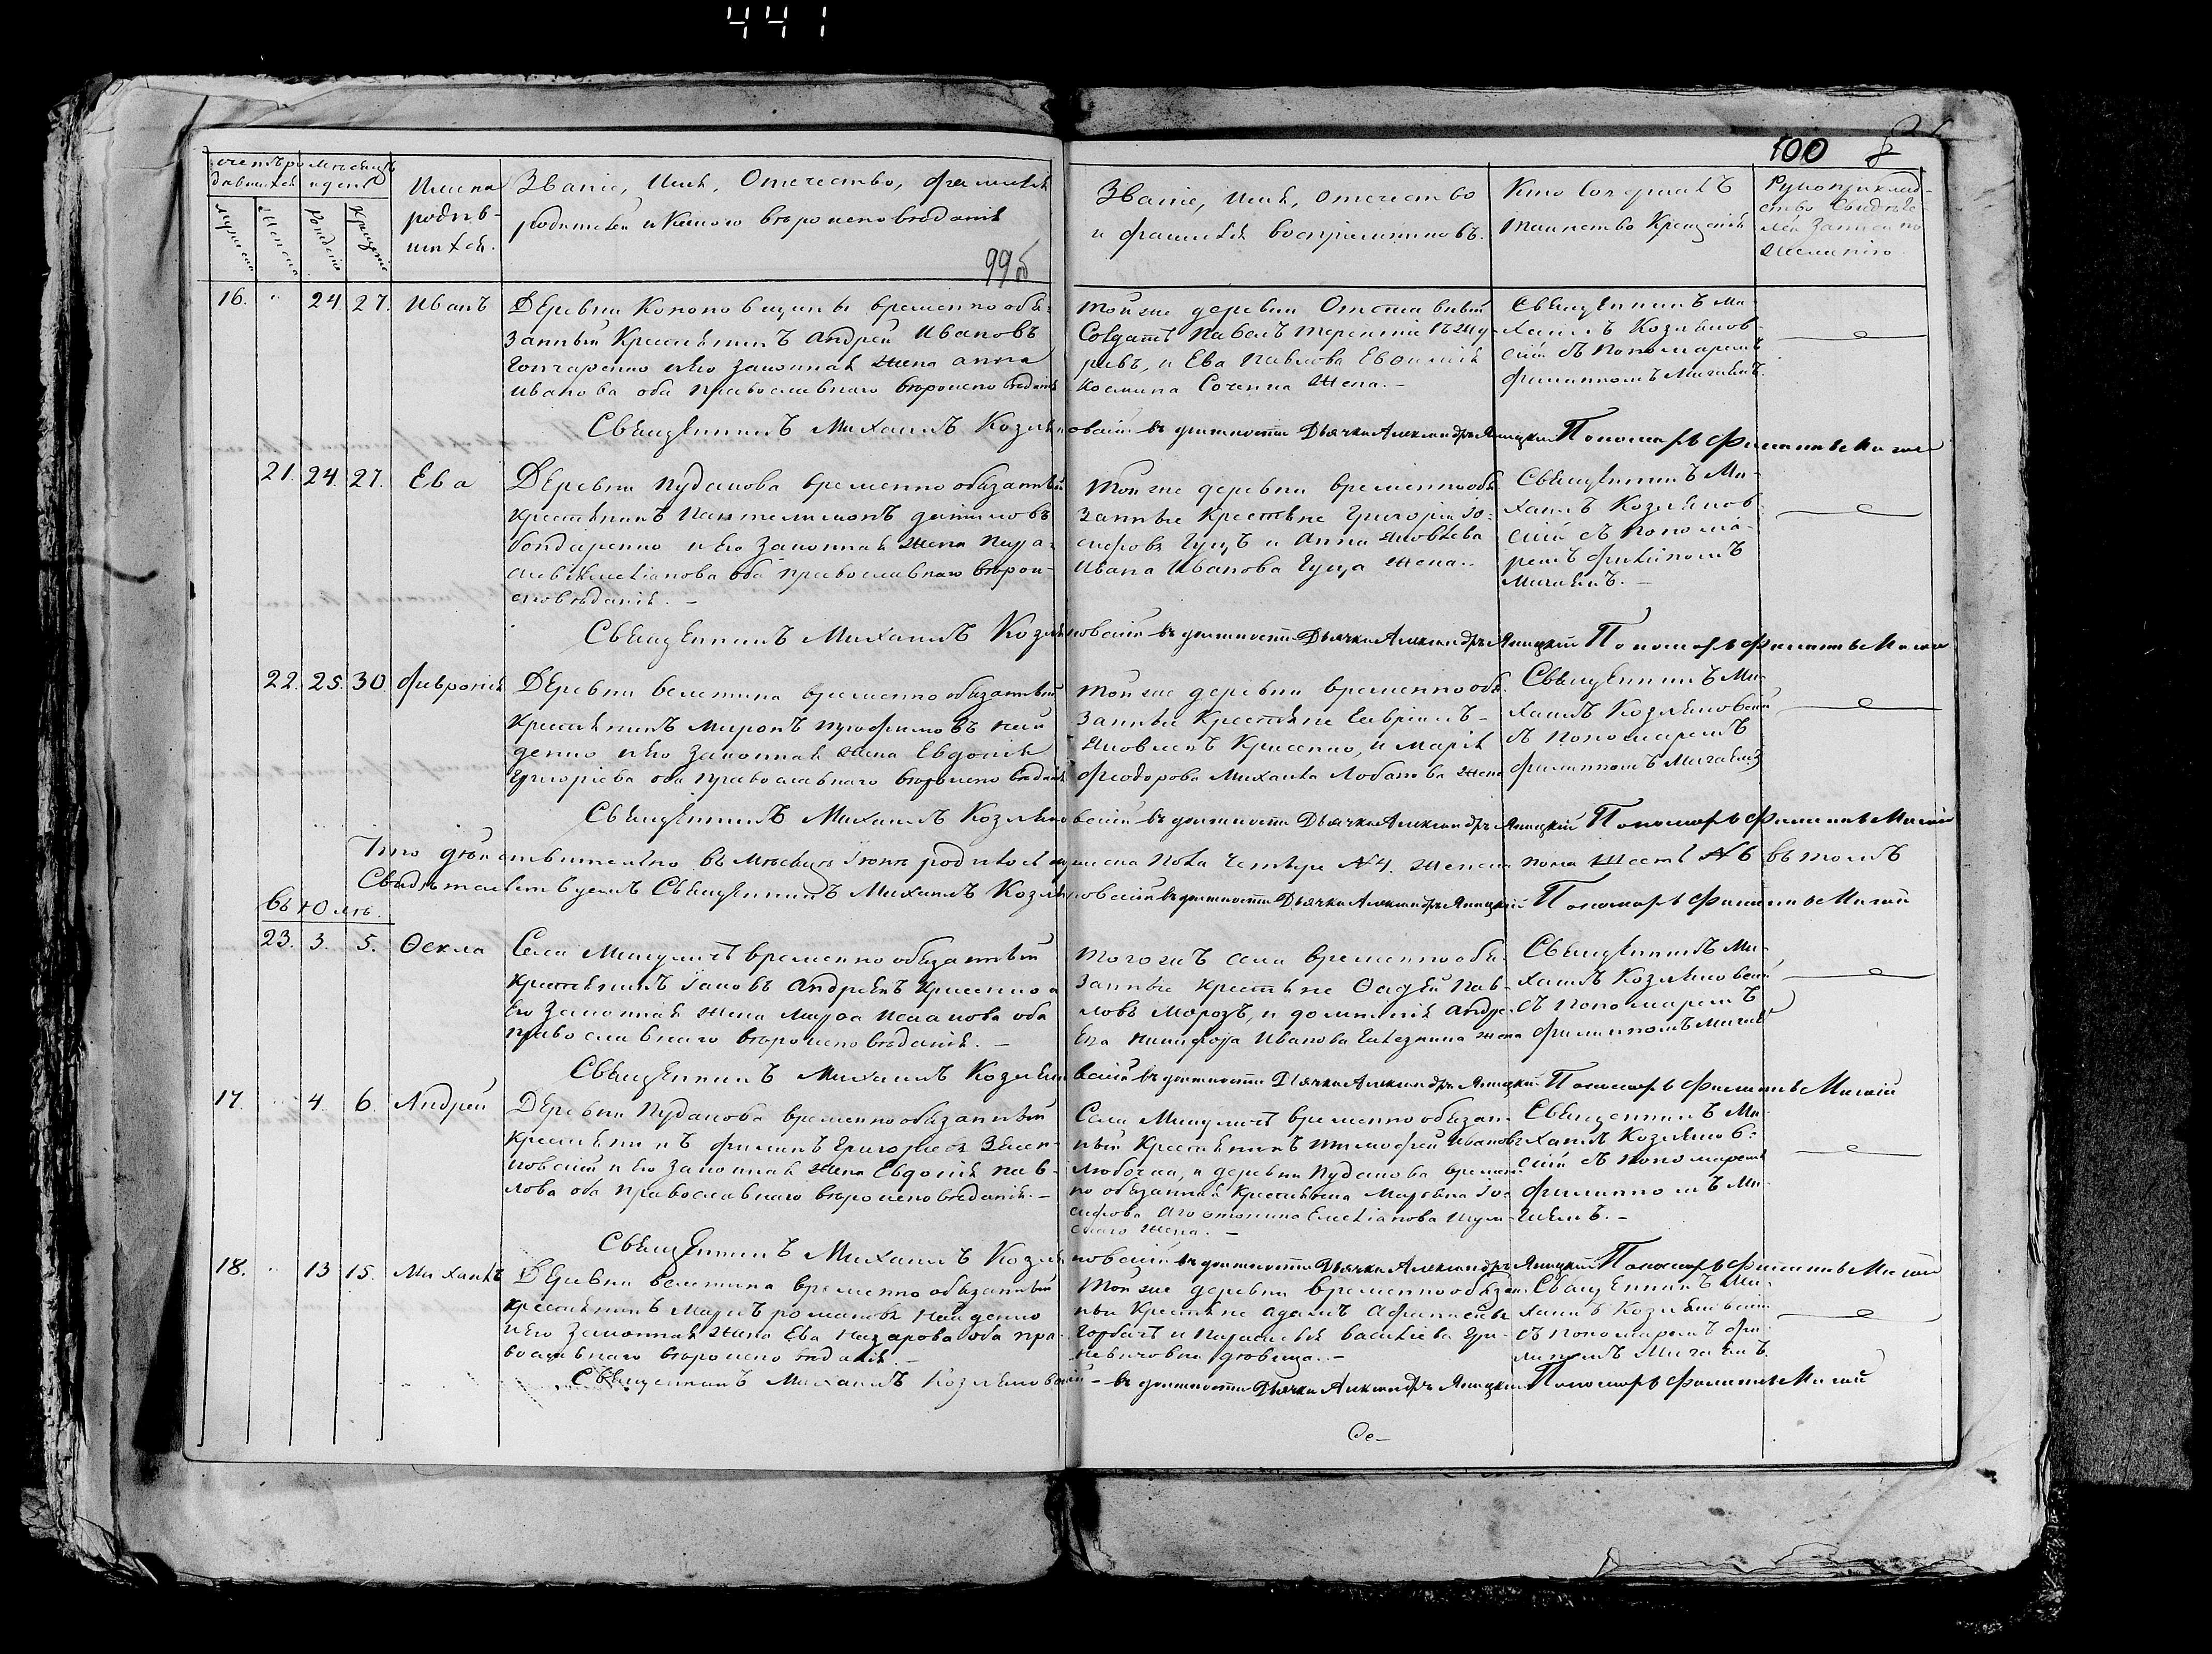 441
100
Счетъ ро- Мѣсяцъ
дившихся и день
Мужеска
Женска
Рожденія
Крещенія
Имена
родив-
шихся.
Званіе, Имя, Отечество, фамилія
родителей и какого вѣроисповѣданія
99б
Званіе, Имя, Отечество
и фамилія воспріемниковъ.
Кто совершалъ
таинство Крещенія
Рукоприклад-
ство свидѣте-
лей записи по
желанію.
16. " 24. 27. Иванъ
Деревни Кононовщины временно обя-
занный Крестьянинъ Андрей Ивановъ
Гончаренко и его законная жена Анна
Иванова оба православнаго вѣроисповѣданія
той же деревни Отставный
Солдатъ Павелъ Терентіевъ
и Ева Павлова
жена.-
Священникъ Ми-
хаилъ Козляков-
скій съ пономаремъ
Филиппомъ
Священникъ Михаилъ Козляковскій въ должности Дьячка Александръ Яницкій Пономарь Филиппъ
21. 24. 27. Ева
Деревни Пуданова временно обязанный
Крестьянинъ Пантелимонъ Даниловъ
Бондаренко и его законная жена Пара-
скева Емеліанова оба православнаго вѣрои-
сповѣданія.-
Той же деревни временно обя-
занные Крестьяне Григорій Іо-
сифовъ Гущъ и Анна Яковлева
Ивана Иванова Гуща жена.
Священникъ Ми-
хаилъ Козляков-
скій съ понома-
ремъ Филиппомъ
Священникъ Михаилъ Козляковскій въ должности Дьячка Александръ Яницкій Пономарь Филиппъ
22. 25. 30 Февронія
Деревни Велетина временно обязанный
Крестьянинъ Миронъ Трофимовъ Най-
денко и его законная жена Евдокія
Григоріева оба православнаго вѣроисповѣданія
той же деревни временно обя-
занные Крестьяне Гавріилъ
Яковлевъ Крисенко, и Марія
Феодорова Михаила Лобанова жена
Священникъ Ми-
хаилъ Козляковскій
съ пономаремъ
Филиппомъ
Священникъ Михаилъ Козляковскій въ должности Дьячка Александръ Яницкій Пономарь Филиппъ
Что дѣйствительно въ Мѣсяцѣ Іюнѣ родилось мужеска пола четыре №4. женска пола шесть №6 въ томъ
Свидѣтельствуемъ Священникъ Михаилъ Козляковскій въ должности Дьячка Александръ Яницкій Пономарь Филиппъ
въ Юлѣ.
23. 3. 5. Ѳекла
Села Микуличъ временно обязанный
Крестьянинъ Іаковъ Андреевъ Крисенко и
его законная жена Марфа Исакова оба
православнаго вѣроисповѣданія.-
тогожъ села временно обя-
занные крестьяне Ѳадей Пав-
ловъ Морозъ, и Домникія Андре-
ева Никифора Иванова жена
Священникъ Ми-
хаилъ Козляковскій
съ пономаремъ
Филиппомъ
Священникъ Михаилъ Козляковскій въ должности Дьячка Александръ Яницкій Пономарь Филиппъ
17. 4. 6. Андрей
Деревни Пуданова временно обязанный
Крестьянинъ Филипъ Григорьевъ Зелен-
ковскій и его законная жена Евдокія Пав-
лова оба православнаго вѣроисповѣданія.-
Села Микуличъ временно обязан-
ный Крестьянинъ Тимофей Ивановъ
и деревни Пуданова времен-
но обязанная крестьянка Марфина Іо-
сифова Емеліанова
жена.-
Священникъ Ми-
хаилъ Козляков-
скій съ пономаремъ
Филиппомъ
Священникъ Михаилъ Козляковскій въ должности Дьячка Александръ Яницкій Пономарь Филиппъ
18. " 13 15. Михаилъ
Деревни Велетина временно обязанный
крестьянинъ Романовъ Найденко
и его законная жена Ева Назарова оба пра-
вославнаго вѣроисповѣданія.-
Той же деревни временно обязан-
ные Крестьяне Адамъ
Горбачъ и Параскевья Василіева
дѣвица.-
Священникъ Ми-
хаилъ Козляковскій
съ пономаремъ Фи-
липомъ
Священникъ Михаилъ Козляковскій - въ должности Дьячка Александръ Яницкій Пономарь Филиппъ